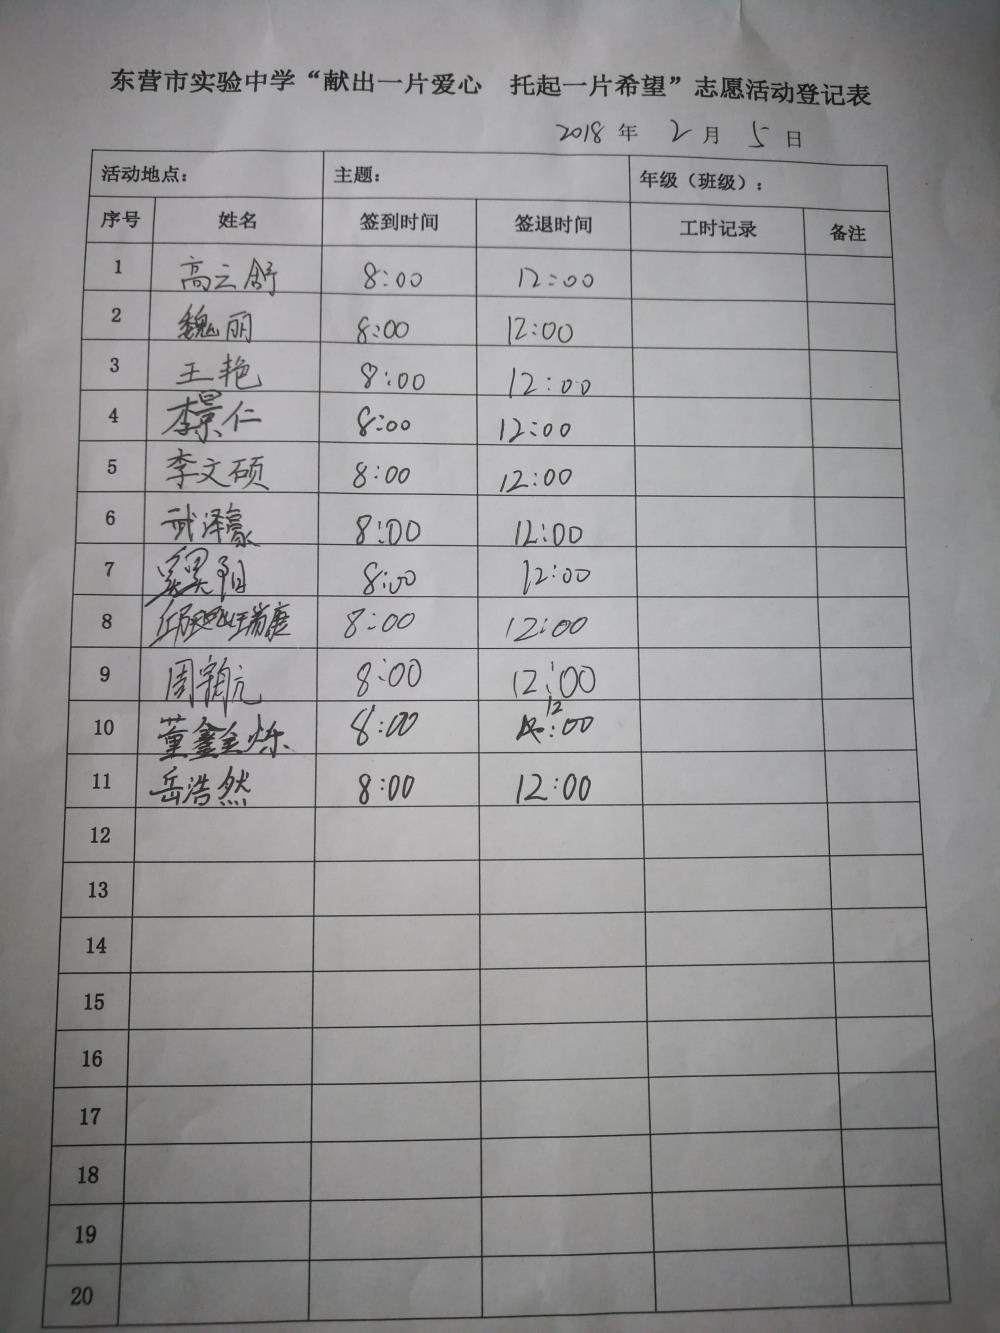 东营市实验中学“献出一片爱心 托起一片希望”志愿活动登记表
2018 年 2 月 5 日
活动地点: 主题: 年级（班级）:
序号 姓名 签到时间 签退时间 工时记录 备注
1 高云舒 8:00 12:00
2 魏丽 8:00 12:00
3 王艳 8:00 12:00
4 李景仁 8:00 12:00
5 李文硕 8:00 12:00
6 武泽豪 8:00 12:00
7 阳 8:00 12:00
8 8:00 12:00
9 周航 8:00 12:00
10 董鑫烁 8:00 12:00
11 岳浩然 8:00 12:00
12
13
14
15
16
17
18
19
20